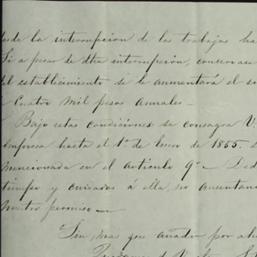 desde la interrupcion de los trabajos ha
Si a pesar de dha interrupcion, conservase
el establecimiento se le aumentará el s
a Cuatro mil pesos anuales.—
Bajo estas condiciones se consagra V.
empresa hasta el 1º de Enero de 1865. 
mencionada en el articulo 9º — Ded
tiempo y cuidados á ella, no ausentan
nuestro permiso.—
Son, mas que añadir por ah